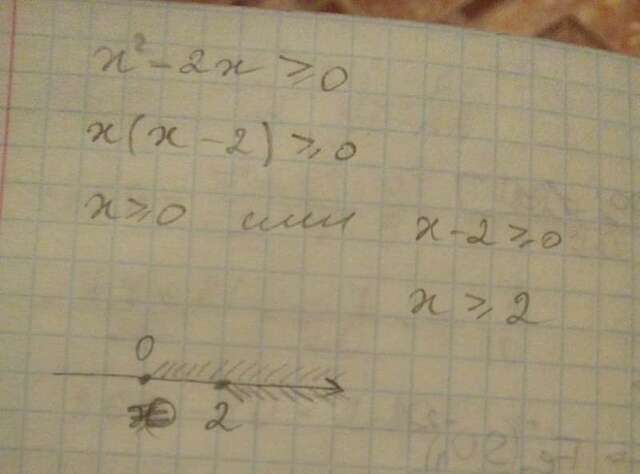 x² - 2x ≥ 0
x(x - 2) ≥ 0
x ≥ 0 или x - 2 ≥ 0
x ≥ 2
0
2